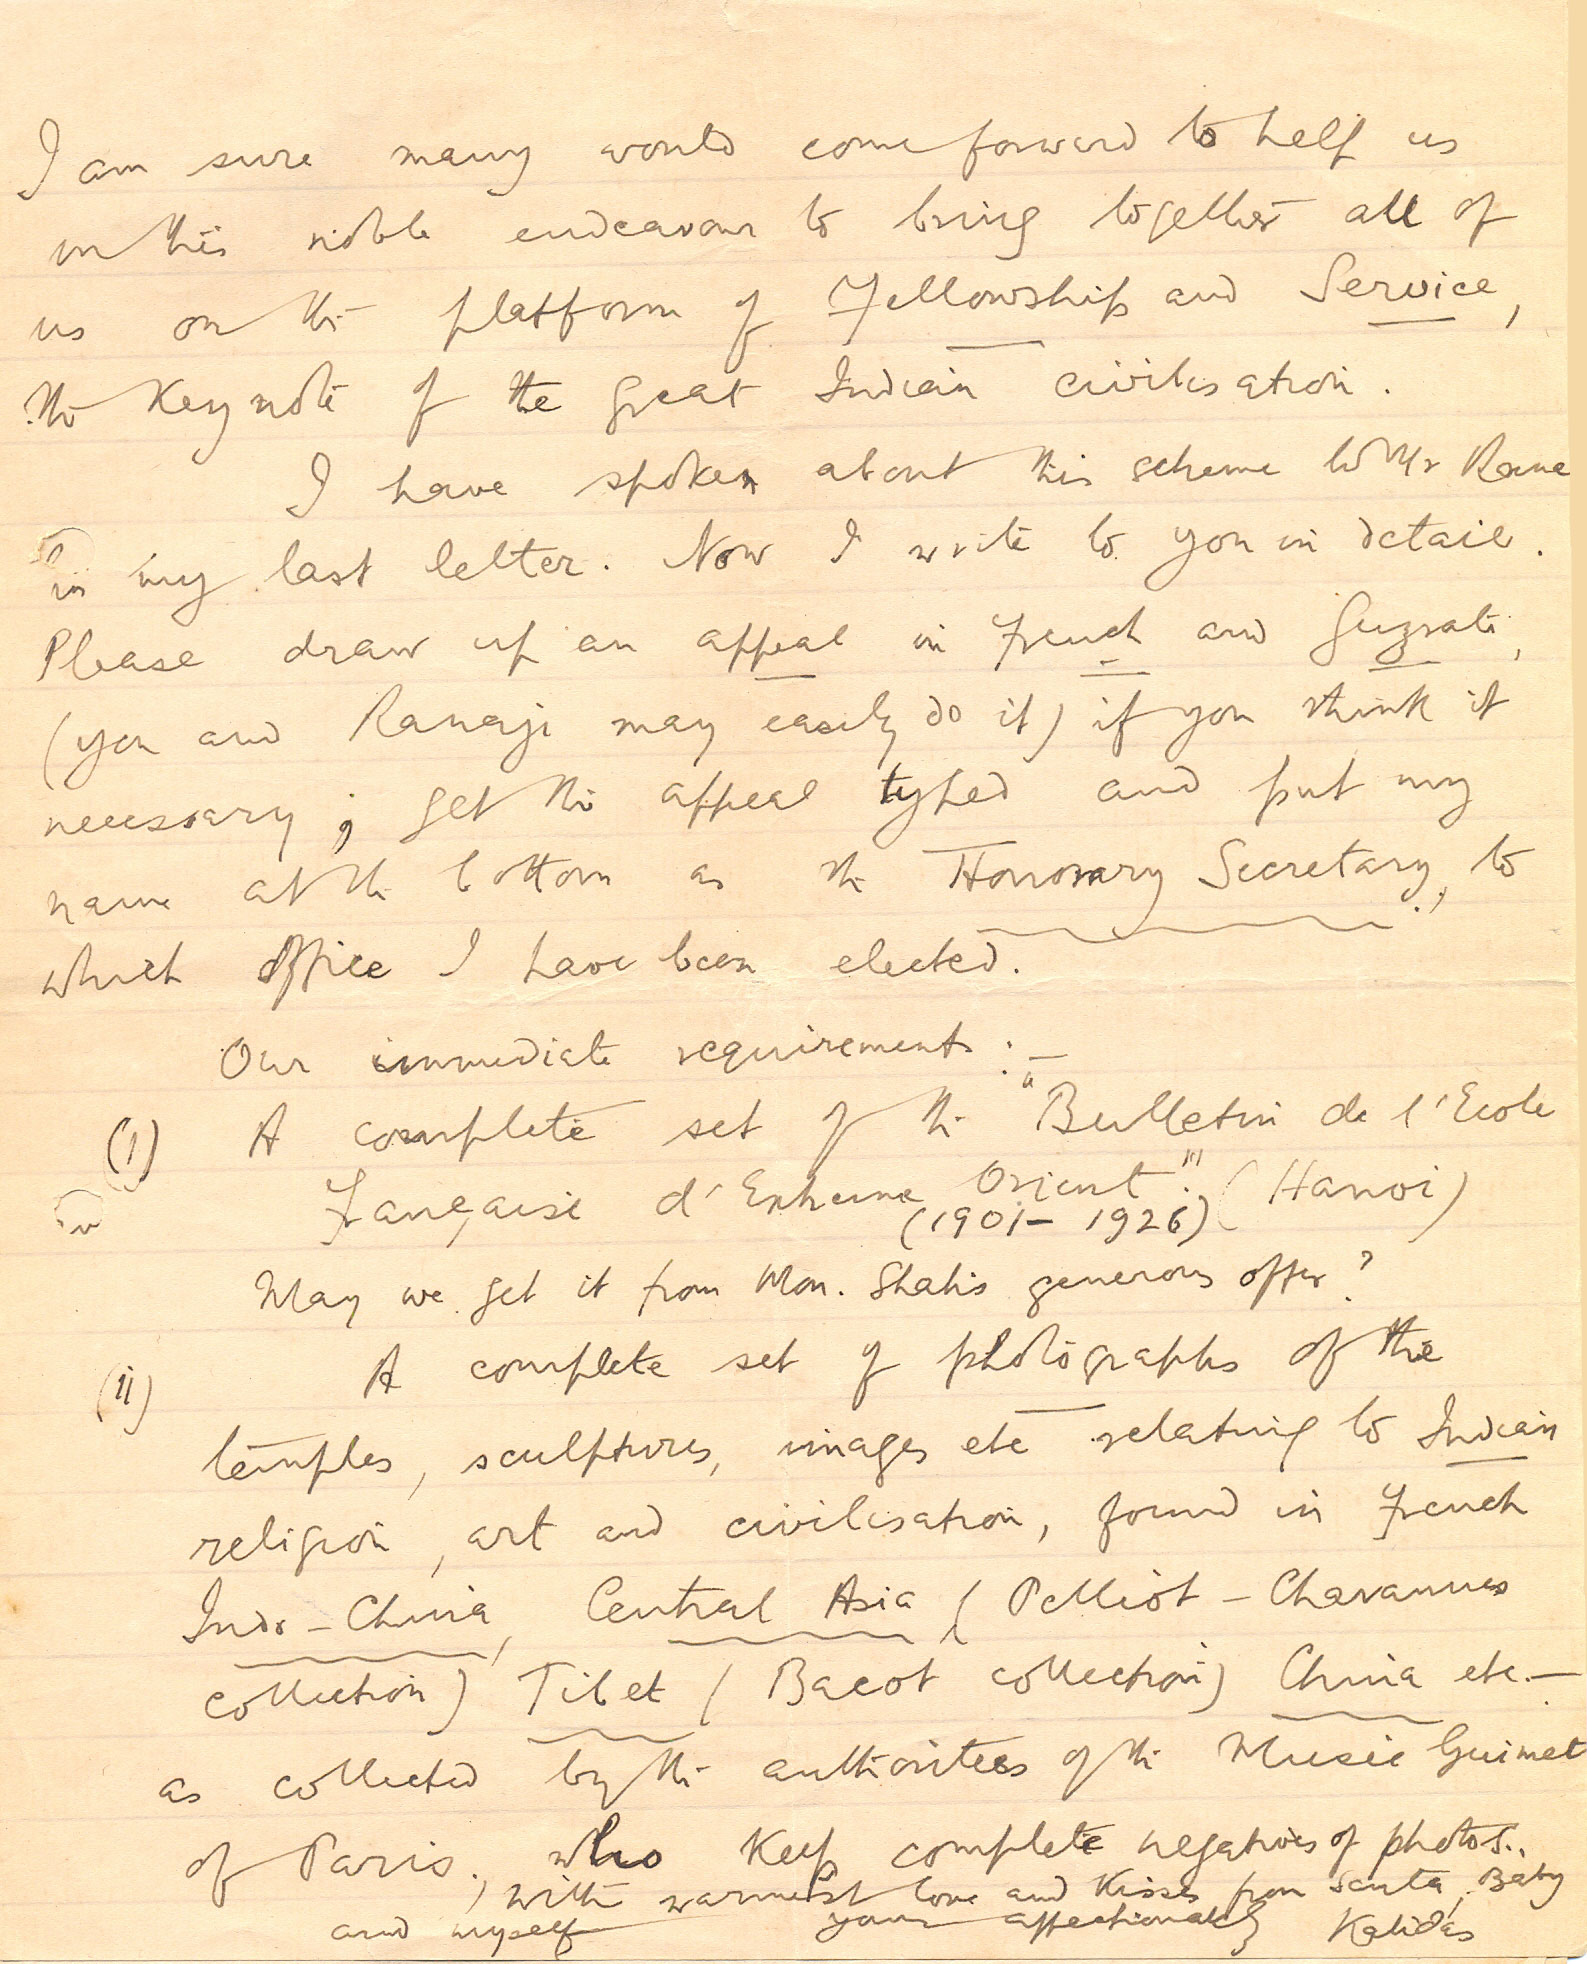 I am sure many would come forward to help us
in this noble endeavour to bring together all of
us on the platform of Fellowship and Service,
the Keynote of the great Indian civilisation.
I have spoken about this scheme to Mr Rana
in my last letter. Now I write to you in detail.
Please draw up an appeal in French and Guzrati,
(you and Ranaji may easily do it) if you think it
necessary; get the appeal typed and put my
name at the bottom as the Honorary Secretary, to
which office I have been elected.
Our immediate requirements :—
(i) A complete set of the "Bulletin de l'Ecole
Française d'Extreme Orient" (Hanoi)
(1901 - 1926)
May we get it from Mon. Shah's generous offer?
(ii) A complete set of photographs of the
temples, sculptures, images etc relating to Indian
religion, art and civilisation, found in French
Indo-China, Central Asia (Pelliot - Chavannes
collection) Tibet (Bacot collection) China etc.—
as collected by the authorities of the Museé Guimet
of Paris, who Keep complete negatives of photos.
with warmest love and Kisses from Santa, Baby
and myself yours affectionately Kalidas